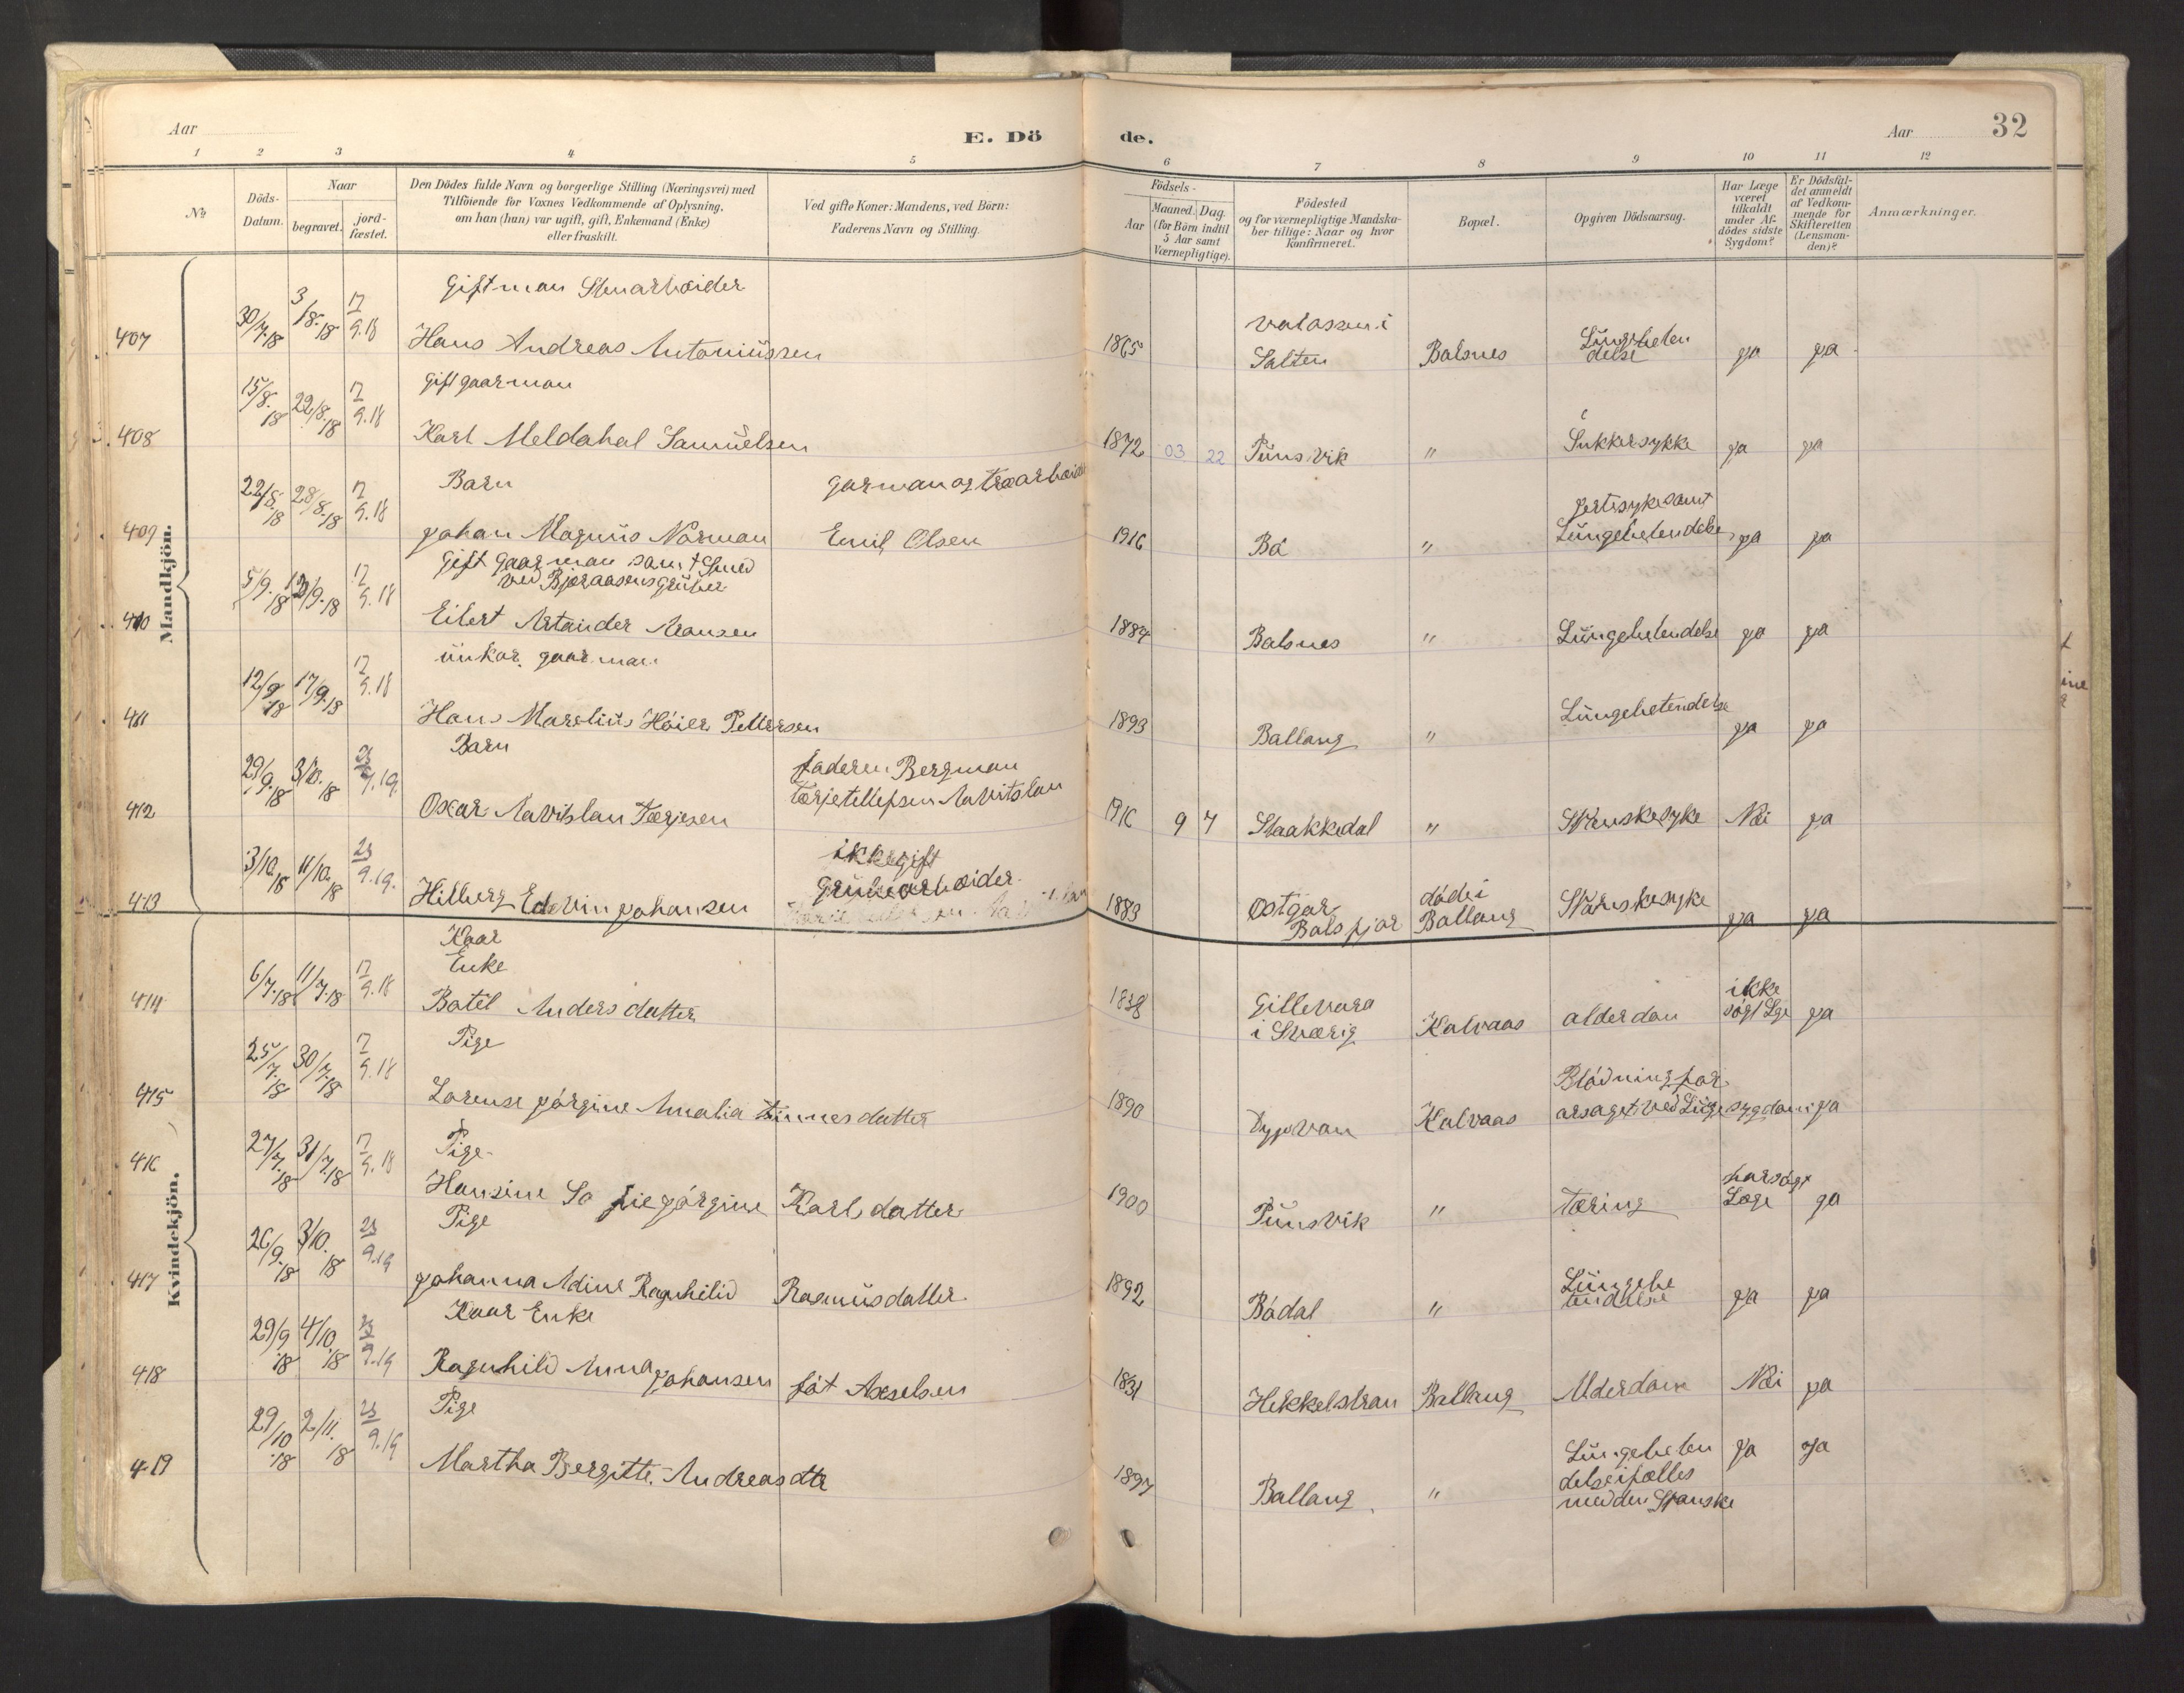 Aar
E. Dö
de.
Aar
32
1 2 3 4 5 6 7 8 9 10 11 12
No
Döds-Datum.
Naar
begravet.
jord-fæstet.
Den Dödes fulde Navn og borgerlige Stilling (Næringsvei) med
Tilföiende for Voxnes Vedkommende af Oplysning,
om han (hun) var ugift, gift, Enkemand (Enke)
eller fraskilt.
Ved gifte Koner: Mandens, ved Börn:
Faderens Navn og Stilling.
Födsels-
Aar
Maaned. Dag.
(for Börn indtil
5 Aar samt
Værnepligtige).
Födested
og for værnepligtige Mandska-
ber tillige: Naar og hvor
konfirmeret.
Bopæl.
Opgiven Dödsaarsag.
Har Læge
været
tilkaldt
under Af-
dödes sidste
Sygdom?
Er Dödsfal-
det anmeldt
af Vedkom-
mende for
Skifteretten
(Lensman-
den)?
Anmærkninger.
Mandkjön.
Giftman Stenarbeider
407 30/7.18 3/8.18 17/9.18 Hans Andreas Antoniussen 1865 Salten Balsnes Lungebeten
delse ja ja
Gift gaarman
408 15/8.18 22/8.18 17/9.18 Karl Meldahal Samuelsen 1872 03 22 Punsvik " Sukkersykke ja ja
Barn garman og træarbeide
409 22/8.18 28/8.18 17/9.18 Johan Magnus Norman Emil Olsen 1916 Bö " jertesyke samt
Lungebetendelse ja ja
Gift gaarman samt Smed
ved Bjøraasens gruber
410 5/9.18 12/9.18 17/9.18 Eilert Artander Aronsen 1884 Balsnes " Lungebetendelse ja ja
unkar. gaarman
411 12/9.18 17/9.18 17/9.18 Hans Marelius Höier Pettersen 1893 Ballang " Lungebetendelse ja ja
Barn faderen Bergman
Tærjetellefsen Navitslan
412 29/9.18 3/10.18 23/9.19 Oscar Navitslan Tærjesen 1916 9 7 Staakkedal " Spanskesyke Nei ja
ikke gift
grubearbeider
413 3/10.18 11/10.18 23/9.19. Hilberg Edevin Johansen 1883 Ostgar
Balsfjor döde i
Ballang Spanskesyke ja ja
Kvindekjön.
Kaar
Enke
414 6/7.18 11/7.18 17/9.18 Batel Andersdatter 1838 Gillevara
i Sværig Kalvaas alderdon ikke
søgt Lge ja
Pige
415 25/7.18 30/7.18 17/9.18 Lorense Jørgine Amalia Tinnesdatter 1890 Dypvan Kalvaas Blødning for
arsaget ved Lungesygdom ja
Pige
416 27/7.18 31/7.18 17/9.18 Hansine Sofie Jørgine Karlsdatter 1900 Punsvik " Tæring har søgt
Læge ja
Pige
417 26/9.18 3/10.18 23/9.19 Johanna Adine Ragnhilid Rasmusdatter 1892 Bödal " Lungebe
tendelse ja ja
Kaar Enke
418 29/9.18 4/10.18 23/9.19 Ragnhild Anna Johansen föt Axselsen 1831 Hekkelstran Ballang Alderdom Nei ja
Pige
419 29/10.18 2/11.18 23/9.19 Martha Bergitte Andreasdtr 1897 Ballang " Lungebeten
delse ifælles
med den Spanske ja ja